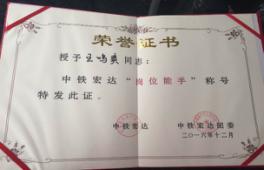 荣誉证书
授予王鸣爽同志：
中铁宏达“岗位能手”称号
特发此证。
中铁宏达 中铁宏达团委
二〇一六年十二月